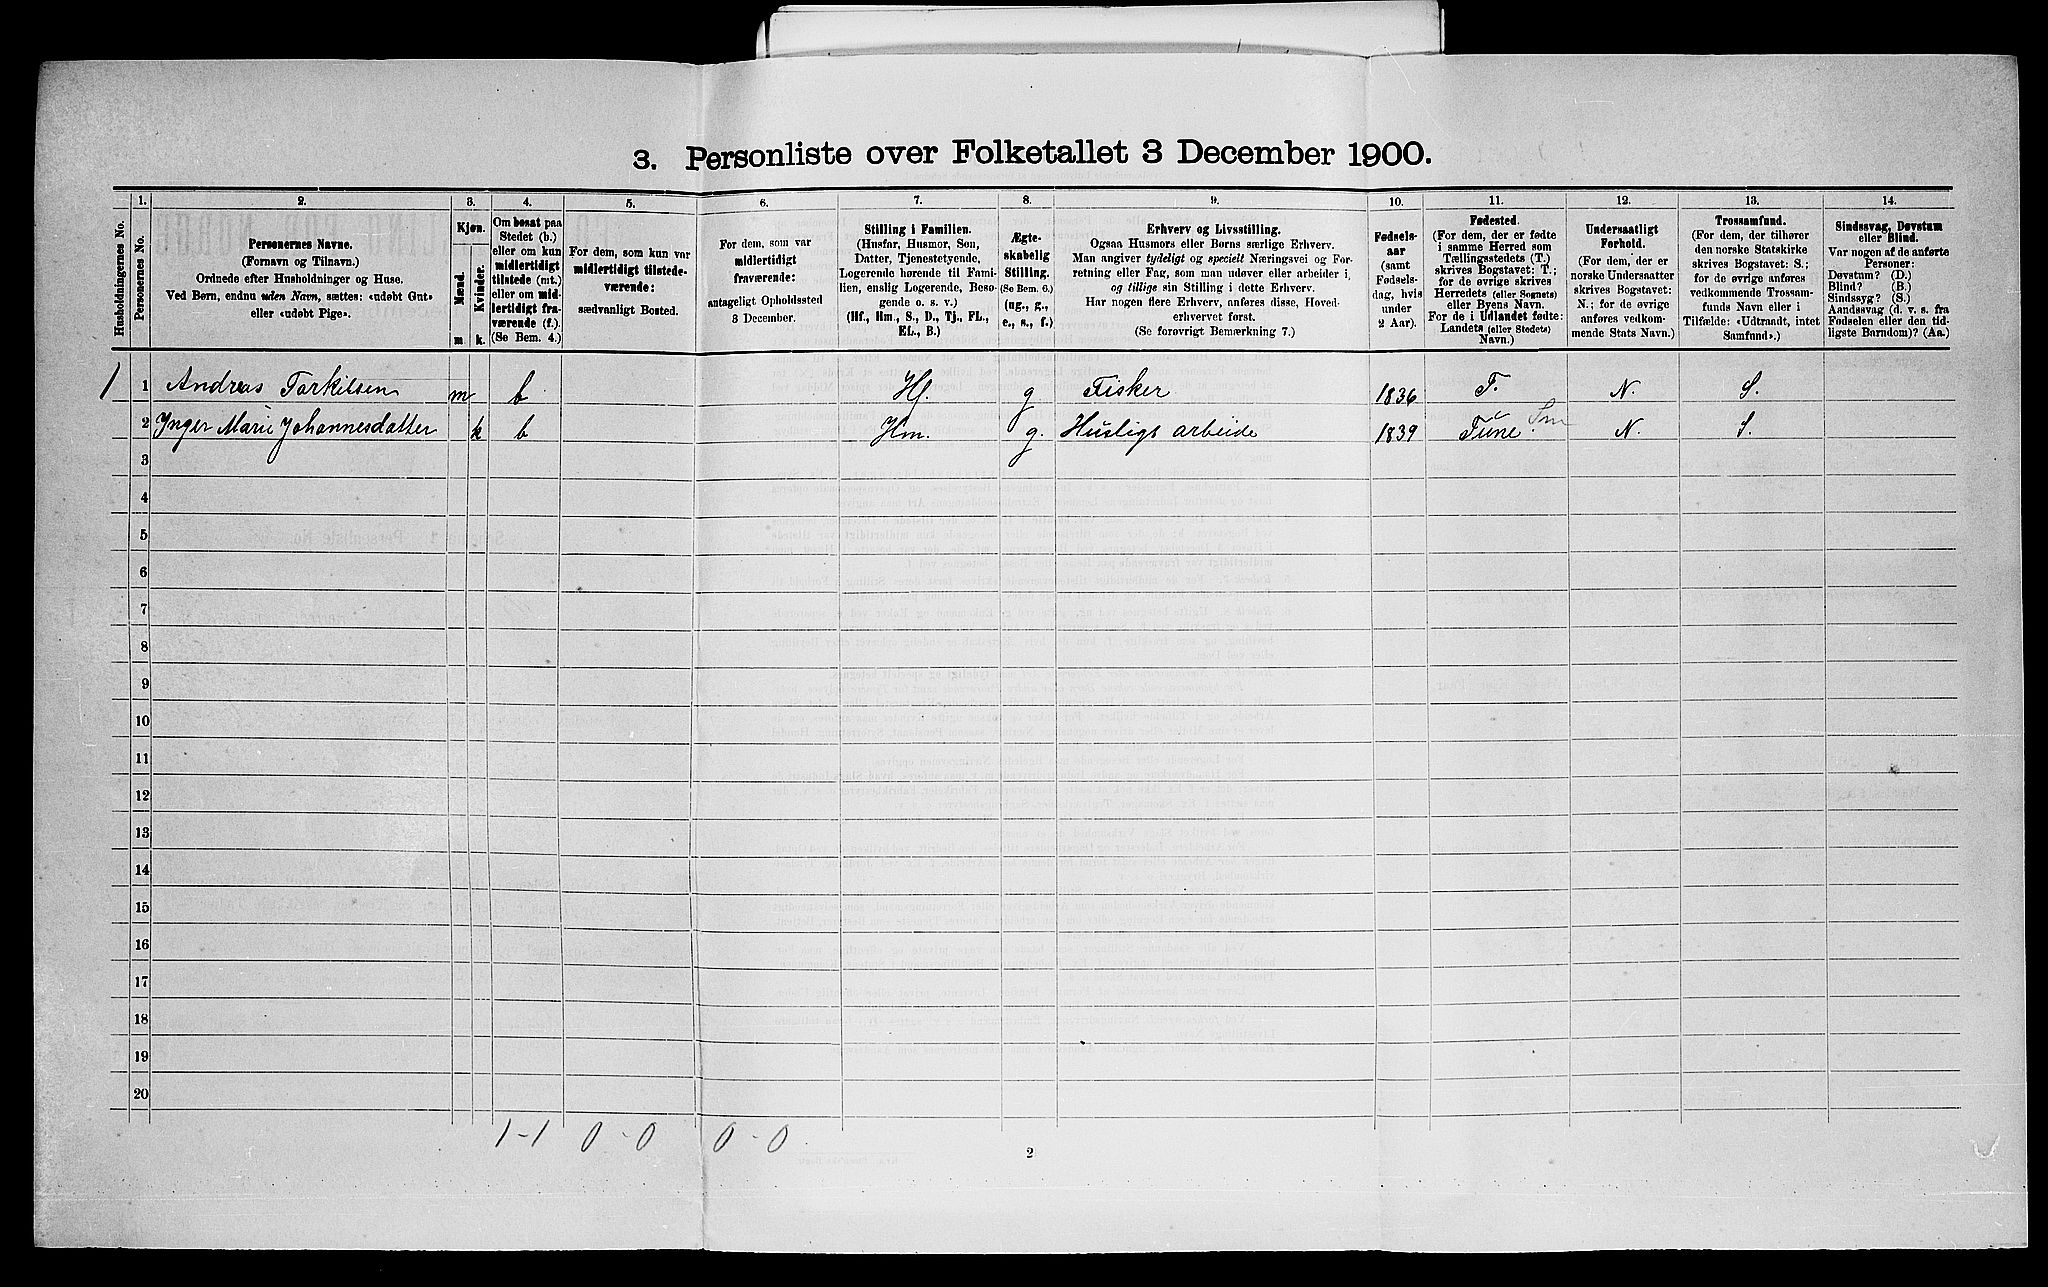 3. Personliste over Folketallet 3 December 1900.
Husholdningernes No.
1.
Personernes No.
2.
Personernes Navne.
(Fornavn og Tilnavn.)
Ordnede efter Husholdninger og Huse.
Ved Børn, endnu uden Navn, sættes: «udøbt Gut»
eller «udøbt Pige».
3.
Kjøn.
Mænd.
Kvinder.
m.
k.
4.
Om bosat paa
Stedet (b.)
eller om kun
midlertidigt
tilstede (mt.)
eller om mid-
lertidigt fra-
værende (f.)
(Se Bem. 4.)
5.
For dem, som kun var
midlertidigt tilstede-
værende:
sædvanligt Bosted.
6.
For dem, som var
midlertidigt
fraværende:
antageligt Opholdssted
3 December.
7.
Stilling i Familien.
(Husfar, Husmor, Søn,
Datter, Tjenestetyende,
Logerende hørende til Fami-
lien, enslig Logerende, Besø-
gende o. s. v.)
(Hf., Hm., S., D., Tj., FL.,
EL., B.)
8.
Ægte-
skabelig
Stilling.
(Se Bem. 6.)
(ug., g.,
e., s., f.)
9.
Erhverv og Livsstilling.
Ogsaa Husmors eller Børns særlige Erhverv.
Man angiver tydeligt og specielt Næringsvei og For-
retning eller Fag, som man udøver eller arbeider i,
og tillige sin Stilling i dette Erhverv.
Har nogen flere Erhverv, anføres disse, Hoved-
erhvervet først.
(Se forøvrigt Bemærkning 7.)
10.
Fødsels-
aar
(samt
Fødsels-
dag, hvis
under
2 Aar).
11.
Fødested.
(For dem, der er fødte
i samme Herred som
Tællingsstedets (T.)
skrives Bogstavet: T.;
for de øvrige skrives
Herredets (eller Sognets)
eller Byens Navn.
For de i Udlandet fødte:
Landets (eller Stedets)
Navn.)
12.
Undersaatligt
Forhold.
(For dem, der er
norske Undersaatter
skrives Bogstavet:
N.; for de øvrige
anføres vedkom-
mende Stats Navn.)
13.
Trossamfund.
(For dem, der tilhører
den norske Statskirke
skrives Bogstavet: S.;
for de øvrige anføres
vedkommende Trossam-
funds Navn eller i
Tilfælde: «Udtraadt, intet
Samfund».)
14.
Sindssvag, Døvstum
eller Blind.
Var nogen af de anførte
Personer:
Døvstum? (D.)
Blind? (B.)
Sindssyg? (S.)
Aandssvag (d. v. s. fra
Fødselen eller den tid-
ligste Barndom)? (Aa.)
1 1 Andreas Torkilsen m b Hf. g Fisker 1836 T. N. S.
2 Inger Marie Johannesdatter k b Hm. g. Husligt arbeide 1839 Tune Sm N. S.
3
4
5
6
7
8
9
10
11
12
13
14
15
16
17
18
19
20
1-1 0-0 0-0
2